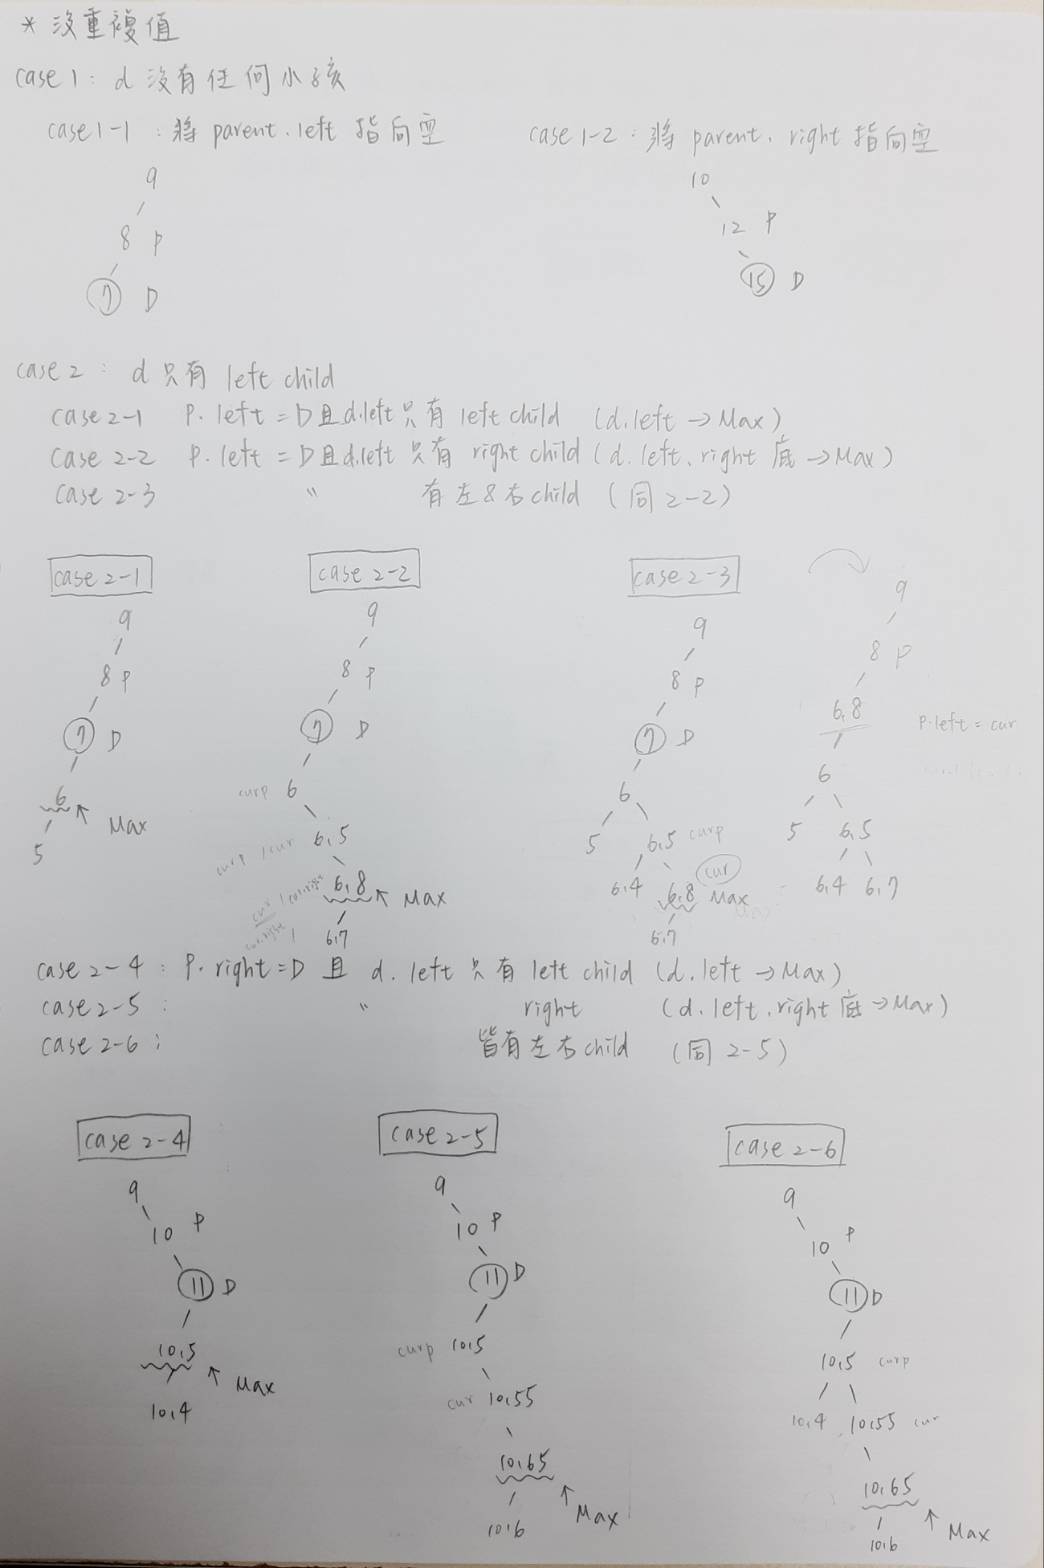 * 沒重複值
case 1: d 沒有任何小孩
case 1-1 : 將 parent.left 指向空
case 1-2 : 將 parent.right 指向空
9
8 P
7 D
10
12 P
15 D
case 2: d 只有 left child
case 2-1 P.left = D且d.left只有 left child (d.left → Max)
case 2-2 P.left = D且d.left 只有 right child (d.left.right 底 → Max)
case 2-3 " 有左&右child (同 2-2)
case 2-1
9
8 P
7 D
6 Max
5
case 2-2
9
8 P
7 D
curp 6
curp / cur 6.5
cur 6.8 Max
6.7
case 2-3
9
8 P
7 D
6
5 6.5 curp
6.4 6.8 cur Max
6.7
9
8 P
6.8 P.left = cur
6
5 6.5
6.4 6.7
case 2-4 : P.right = D 且 d.left 只有 left child (d.left → Max)
case 2-5 : " right (d.left.right 底 → Max)
case 2-6 : 皆有左右child (同 2-5)
case 2-4
9
10 P
11 D
10.5 Max
10.4
case 2-5
9
10 P
11 D
curp 10.5
cur 10.55
10.65 Max
10.6
case 2-6
9
10 P
11 D
10.5 curp
10.4 10.55 cur
10.65 Max
10.6